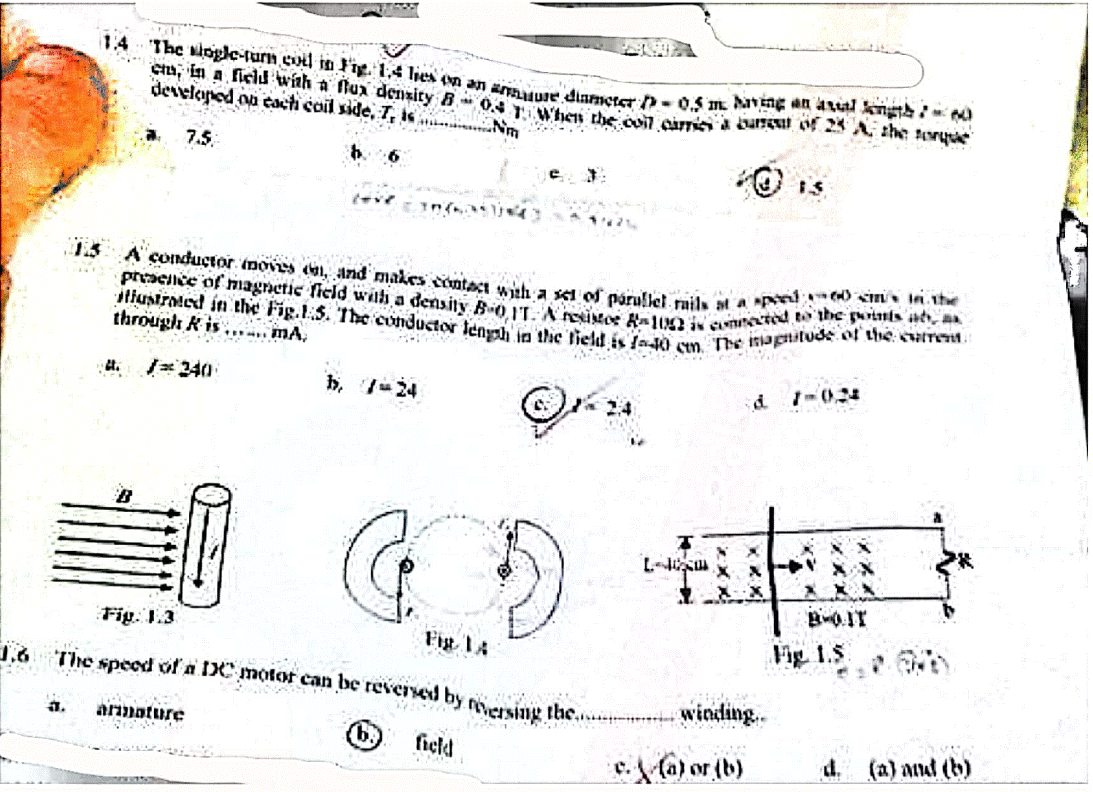 1.4 The single-turn coil in Fig. 1.4 lies on an armature diameter D = 0.5 m having an axial length l = 60
cm, in a field with a flux density B = 0.4 T. When the coil carries a current of 25 A, the torque
developed on each coil side, T, is ..............Nm
a. 7.5 b. 6 c. 3 d. 1.5
1.5 A conductor moves on, and makes contact with a set of parallel rails at a speed v=60 cm/s in the
presence of magnetic field with a density B=0.1T. A resistor R=10Ω is connected to the points ab, as
illustrated in the Fig.1.5. The conductor length in the field is l=40 cm. The magnitude of the current
through R is ....... mA.
a. I= 240 b. I=24 c. I= 2.4 d. I=0.24
B
I
Fig. 1.3
Fig. 1.4
a
L=40 cm
R
b
B=0.1T
Fig. 1.5
1.6 The speed of a DC motor can be reversed by reversing the................... winding..
a. armature b. field c. (a) or (b) d. (a) and (b)